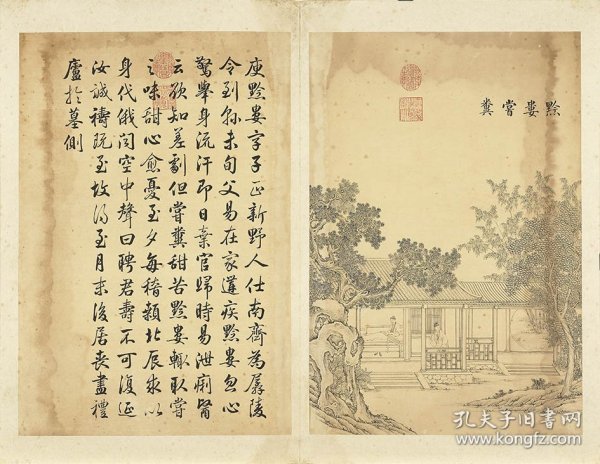 黔婁嘗糞
庾黔婁字子正新野人仕南齊為孱陵
令到縣未旬父易在家遘疾黔婁忽心
驚舉身流汗即日棄官歸時易泄痢醫
云欲知差劇但嘗糞甜苦黔婁輒取嘗
之味甜心愈憂至夕每稽顙北辰求以
身代俄聞空中聲曰聘君壽不可復延
汝誠禱既至故得至月末後居喪盡禮
廬於墓側
孔夫子旧书网
www.kongfz.com